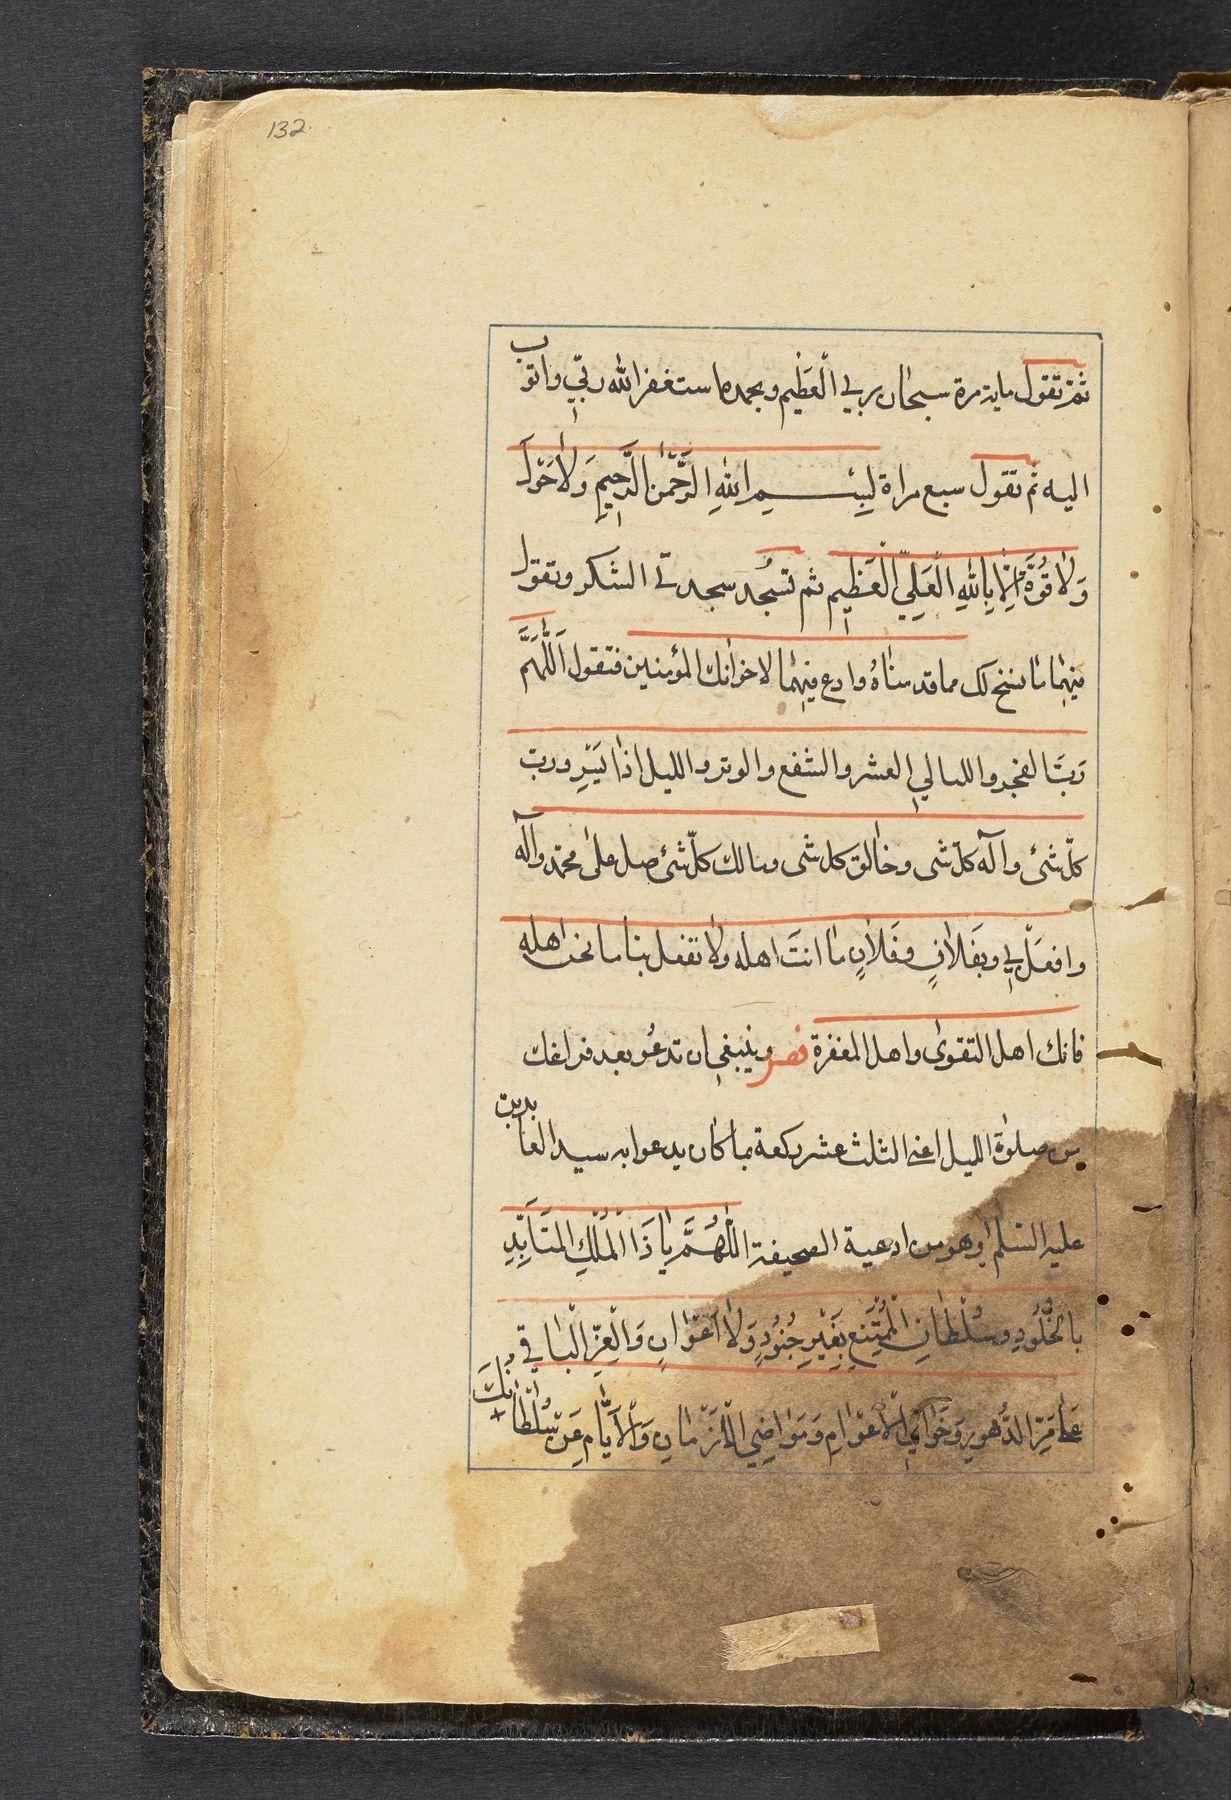 132
ثمّ تقول مایة مرة سبحان ربي الْعَظيم وبحمده استغفر الله ربّي واتوب
اليه ثم تقول سبع مراة بِسْمِ اللهِ الرَّحْمٰنِ الرَّحيمِ وَلاٰ حَوْلَ
وَلاٰ قُوَّةَ اِلّاٰ بِاللهِ الْعَلِيِّ الْعَظيمِ ثم تسجُد سجدتي الشكر وتقول
فيهما ما سنح لك مما قدمناهُ وادع فيهما لاخوانك المؤمنين فتقول اَللّٰهُمَّ
رَبَّ الفجر والليالي العشر والشفع والوتر والليل اذا يَسْرِ وربّ
كلّ شئ وآله كلّ شى وخالق كل شى ومالك كلّ شئ صل على محمّد وآله
وافعَلْ بي وبفَلاٰنٍ وفَلاٰنٍ ما انتَ اهله ولاٰ تفعل بنا ما نحن اهله
فانك اهل التقوىٰ واهل المغفرة فصل وينبغي ان تدعُو بعد فراغك
من صلوٰة الليل اعني الثلث عشر ركعة بما كان يدعوا به سيد العابدين
عليه السّلم وهو من ادعية الصحيفة اللّٰهُمَّ يٰا ذَا الْمُلْكِ الْمُتَاَبِّدِ
بالْخُلُودِ وسُلْطٰانِ الْمُمْتَنِعِ بِغَيْرِ جُنُودٍ وَلاٰ اَعْوٰانٍ وَالْعِزِّ الْبٰاقي
عَلىٰ مَرِّ الدُّهورِ وَخَوٰالِي الْاَعْوٰامِ وَمَوٰاضِي الْاَزْمٰانِ وَالْاَيّٰامِ عَزَّ سُلْطٰانُكَ